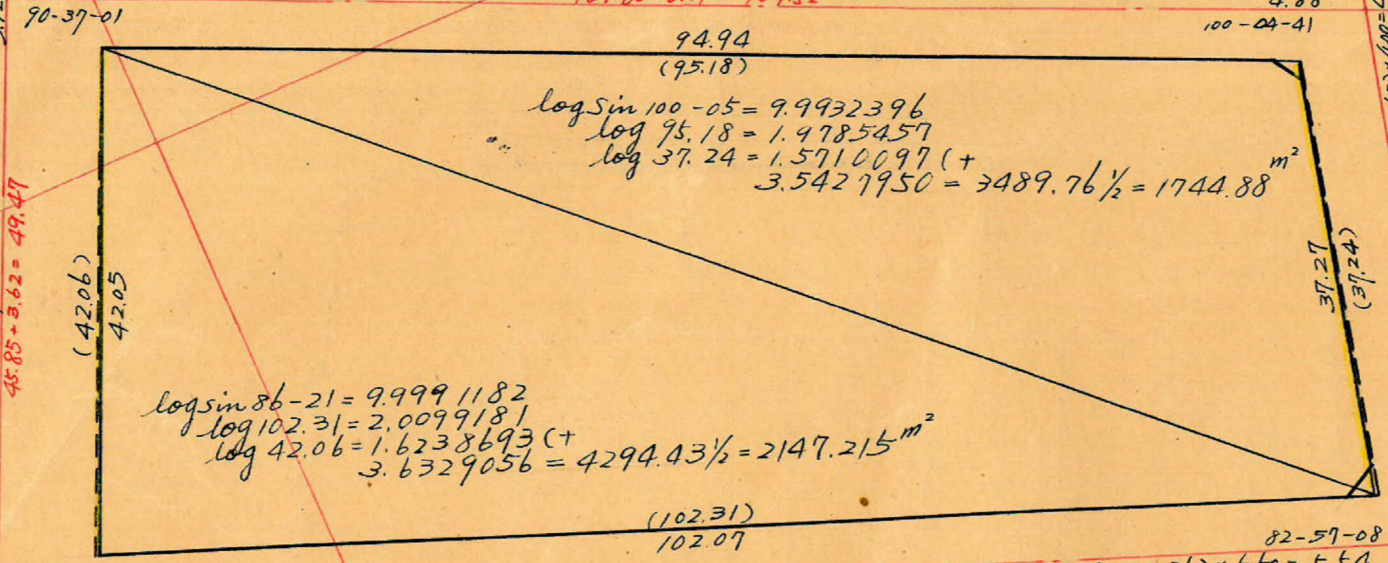 90-37-01
4.88
100-04-41
94.94
(95.18)
log sin 100-05 = 9.9932396
log 95.18 = 1.9785457
log 37.24 = 1.5710097 (+
3.5427950 = 3489.76 1/2 = 1744.88 m²
45.85 + 3.62 = 49.47
(42.06)
42.05
37.27
(37.24)
log sin 86-21 = 9.9991182
log 102.31 = 2.0099181
log 42.06 = 1.6238693 (+
3.6329056 = 4294.43 1/2 = 2147.215 m²
(102.31)
102.07
82-57-08